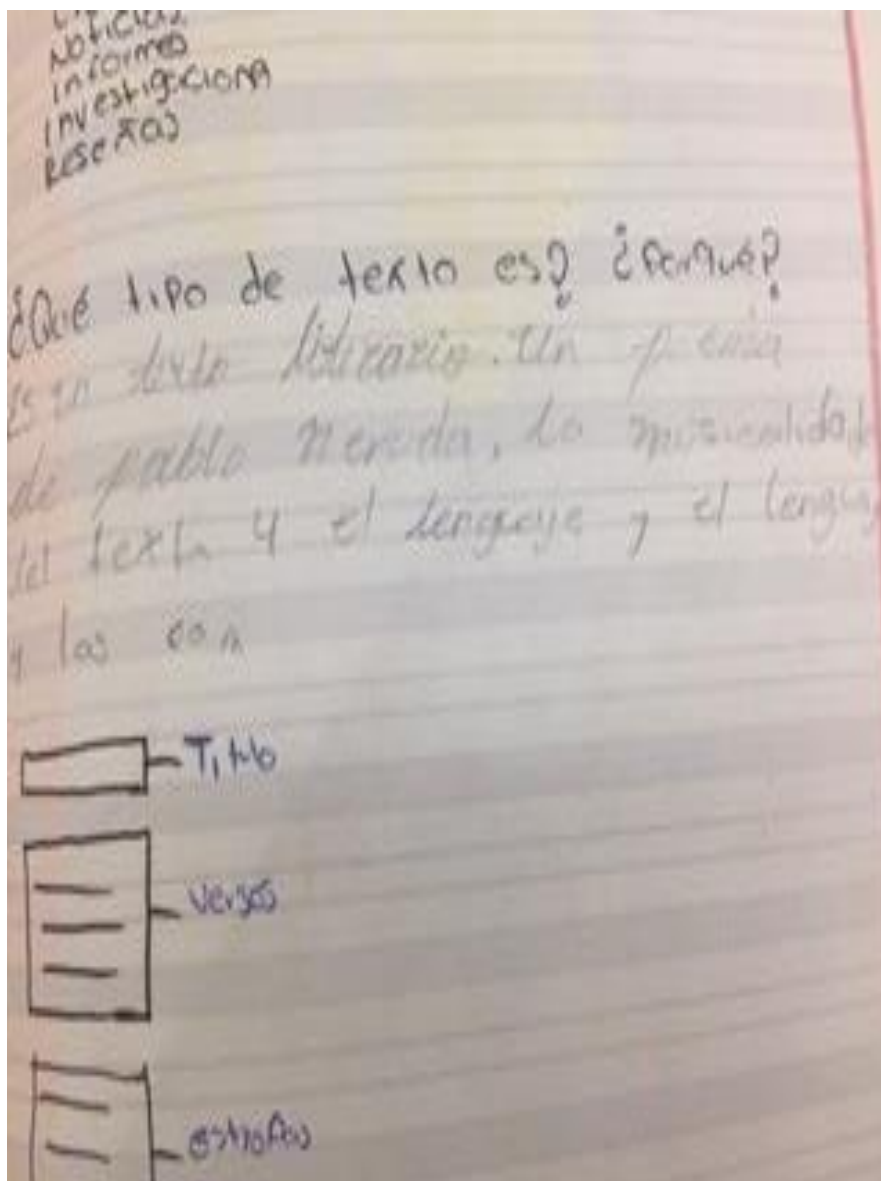 Noticias
Informes
investigaciona
Reseñas
¿Qué tipo de texto es? ¿Porqué?
Es un texto literario. Un poema
de pablo Neruda, la musicalidad
del texto y el lenguaje y el lengua
y los con
Titulo
versos
estrofas